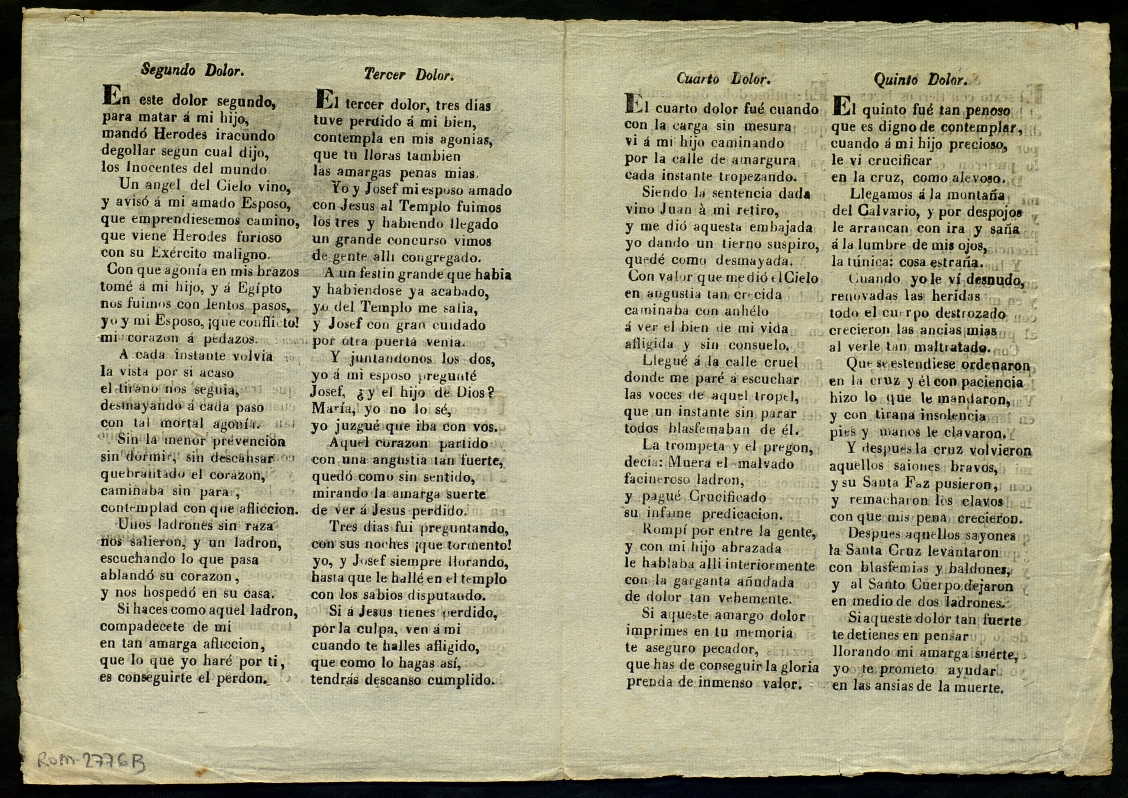 Segundo Dolor.
En este dolor segundo,
para matar á mi hijo,
mandó Herodes iracundo
degollar segun cual dijo,
los Inocentes del mundo
Un angel del Cielo vino,
y avisó á mi amado Esposo,
que emprendiesemos camino,
que viene Herodes furioso
con su Exército maligno.
Con que agonía en mis brazos
tomé á mi hijo, y á Egípto
nos fuimos con lentos pasos,
yo y mi Esposo, ¡que conflicto!
mi corazon á pedazos.
A cada instante volvia
la vista por si acaso
el tirano nos seguia,
desmayando á cada paso
con tal mortal agonía.
Sin la menor prevencion
sin dormir, sin descansar
quebrantado el corazon,
caminaba sin parar,
contemplad con que afliccion.
Unos ladrones sin raza
nos salieron, y un ladron,
escuchando lo que pasa
ablandó su corazon,
y nos hospedó en su casa.
Si haces como aquel ladron,
compadecete de mi
en tan amarga afliccion,
que lo que yo haré por ti,
es conseguirte el perdon.
Tercer Dolor.
El tercer dolor, tres dias
tuve perdido á mi bien,
contempla en mis agonias,
que tu lloras tambien
las amargas penas mias.
Yo y Josef mi esposo amado
con Jesus al Templo fuimos
los tres y habiendo llegado
un grande concurso vimos
de gente alli congregado.
A un festin grande que habia
y habiendose ya acabado,
yo del Templo me salia,
y Josef con gran cuidado
por otra puerta venia.
Y juntandonos los dos,
yo á mi esposo pregunté
Josef, ¿y el hijo de Dios?
María, yo no lo sé,
yo juzgué que iba con vos.
Aquel corazon partido
con una angustia tan fuerte,
quedó como sin sentido,
mirando la amarga suerte
de ver á Jesus perdido.
Tres dias fui preguntando,
con sus noches ¡que tormento!
yo, y Josef siempre llorando,
hasta que le hallé en el templo
con los sabios disputando.
Si á Jesus tienes perdido,
por la culpa, ven á mi
cuando te halles afligido,
que como lo hagas así,
tendrás descanso cumplido.
Cuarto Dolor.
El cuarto dolor fué cuando
con la carga sin mesura
vi á mi hijo caminando
por la calle de amargura
cada instante tropezando.
Siendo la sentencia dada
vino Juan à mi retiro,
y me dió aquesta embajada
yo dando un tierno suspiro,
quedé como desmayada.
Con valor que me dió el Cielo
en angustia tan crecida
caminaba con anhélo
á ver el bien de mi vida
afligida y sin consuelo.
Llegué á la calle cruel
donde me paré a escuchar
las voces de aquel tropel,
que un instante sin parar
todos blasfemaban de él.
La trompeta y el pregon,
decia: Muera el malvado
facineroso ladron,
y pagué Crucificado
su infame predicacion.
Rompí por entre la gente,
y con mi hijo abrazada
le hablaba alli interiormente
con la garganta añudada
de dolor tan vehemente.
Si aqueste amargo dolor
imprimes en tu memoria
te aseguro pecador,
que has de conseguir la gloria
prenda de inmenso valor.
Quinto Dolor.
El quinto fué tan penoso
que es digno de contemplar,
cuando á mi hijo precioso,
le vi crucificar
en la cruz, como alevoso.
Llegamos á la montaña
del Calvario, y por despojos
le arrancan con ira y saña
á la lumbre de mis ojos,
la túnica: cosa estraña.
Cuando yo le ví desnudo,
renovadas las heridas
todo el cuerpo destrozado
crecieron las ancias mias
al verle tan maltratado.
Que se estendiese ordenaron
en la cruz y él con paciencia
hizo lo que le mandaron,
y con tirana insolencia
pies y manos le clavaron.
Y despues la cruz volvieron
aquellos saiones bravos,
y su Santa Faz pusieron,
y remacharon los clavos
con que mis pena crecieron.
Despues aquellos sayones
la Santa Cruz levantaron
con blasfemias y baldones,
y al Santo Cuerpo dejaron
en medio de dos ladrones.
Si aqueste dolor tan fuerte
te detienes en pensar
llorando mi amarga suerte,
yo te prometo ayudar
en las ansias de la muerte.
ROM-2776B